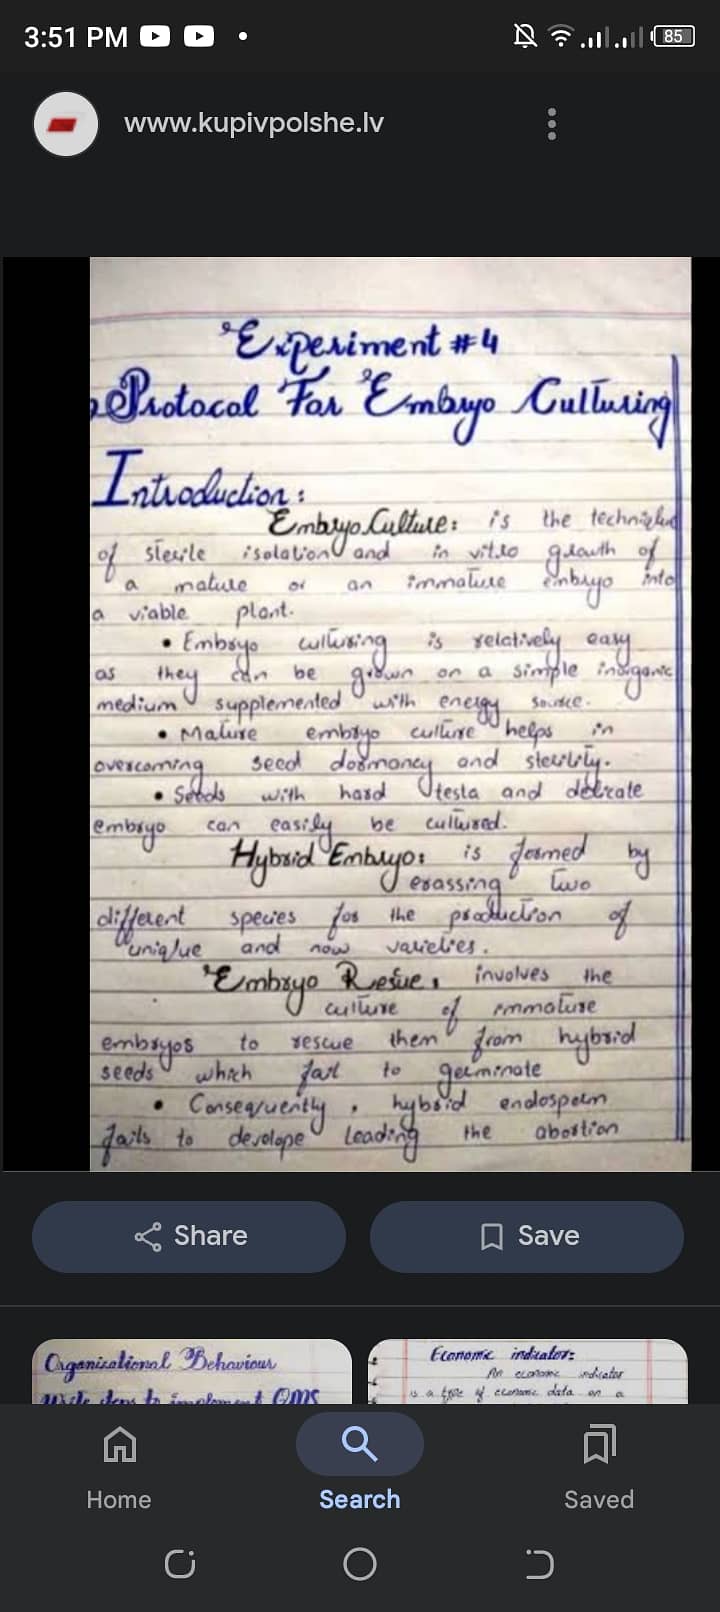 3:51 PM
85
www.kupivpolshe.lv
Experiment #4
Protocol For Embryo Culturing
Introduction:
Embryo Culture: is the
of sterile isolation and in vitro growth of
a mature or an immature embryo into
a viable plant.
• Embryo culturing is relatively easy
as they can be grown on a simple inorganic
medium supplemented with energy source.
• Mature embryo culture helps in
overcoming seed dormancy and sterility.
• Seeds with hard testa and delicate
embryo can easily be cultured.
Hybrid Embryo: is formed by
crassing two
different species for the production of
uniqlue and now varieties.
Embryo Resue: involves the
culture of immature
embryos to rescue them from hybrid
seeds which fail to germinate
• Consequently, hybrid endosperm
fails to develope leading the abortion
Share
Save
Organizational Behaviour
Write steps to implement QMS
Economic indicator:
An economic indicator
is a type of economic data on a
Home
Search
Saved